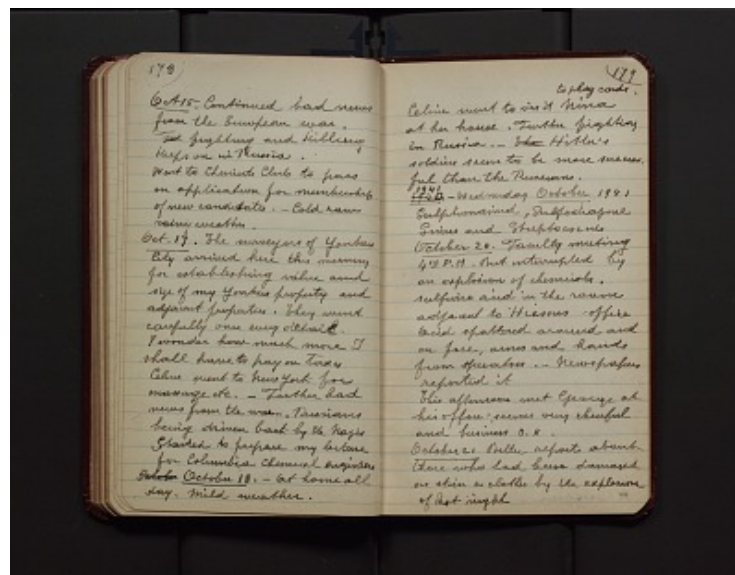 178
Oct 15. Continued bad news
from the European war.
fighting and killing
keeps on in Russia.
Went to Chemists Club to pass
on application for membership
of new candidates. – Cold raw
rainy weather.
Oct. 17. The surveyors of Yonkers
City arrived here this morning
for establishing value and
size of my Yonkers property and
adjoint properties. They went
carefully over every detail.
I wonder how much more I
shall have to pay on taxes
Celine went to New York for
massage etc. – Further bad
news from the war. Russians
being driven back by the Nazis
Started to prepare my lecture
for Columbia Chemical Engineers
October 18. – at home all
day. Mild weather.
179
to play cards.
Celine went to visit Nina
at her house. Further fighting
in Russia. – Hitler's
soldiers seem to be more success-
ful than the Russians.
1941
– Wednesday October 1941
and
October 20. Faculty meeting
4 P.M. But interrupted by
an explosion of chemicals.
acid in the room
adjacent to office
acid spattered around and
on face, arms and hands
from operators. – Newspapers
reported it
This afternoon met George at
his office; seems very cheerful
and business O.K.
October 21 Better reports about
those who had been damaged
on skin or clothes by the explosion
of last night